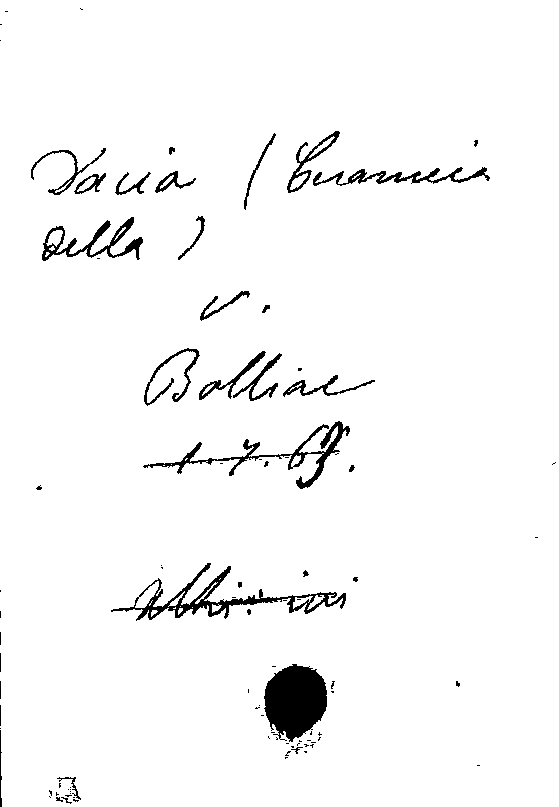 Dacia (Ceramica
della)
v.
Bolliac
1.7.63.